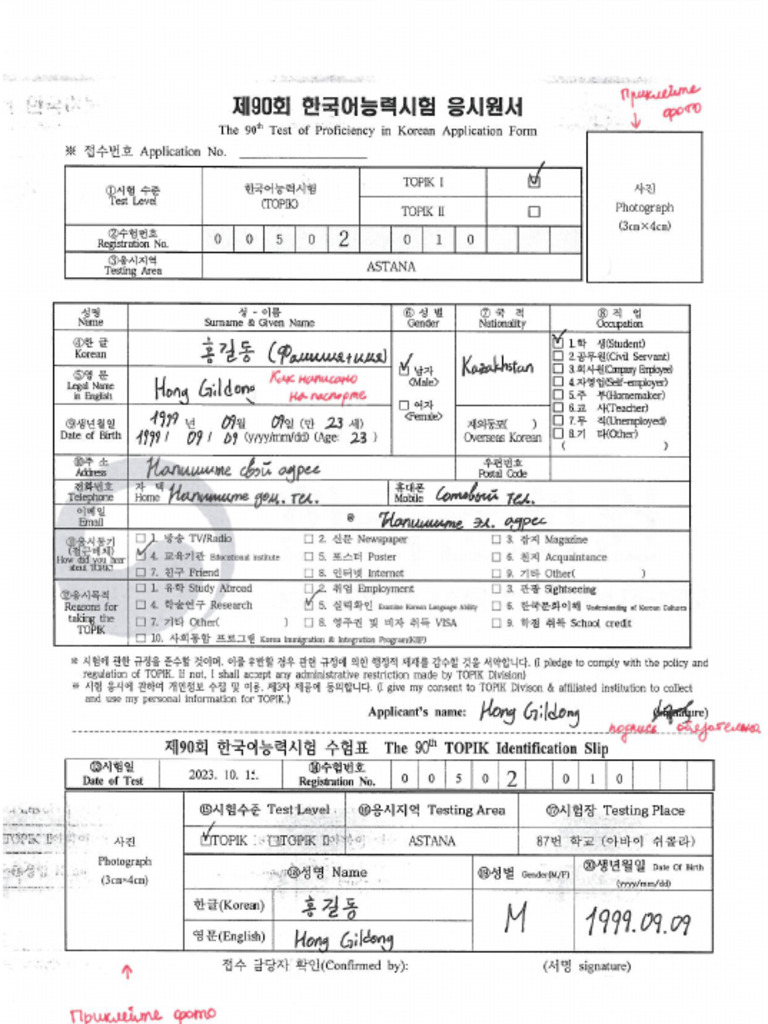 Приклейте
фото
제90회 한국어능력시험 응시원서
The 90th Test of Proficiency in Korean Application Form
※ 접수번호 Application No.
①시험 수준 Test Level
한국어능력시험 (TOPIK)
TOPIK I
TOPIK II
사진
Photograph
(3cm×4cm)
②수험번호 Registration No. 0 0 5 0 2 0 1 0
③응시지역 Testing Area ASTANA
성명 Name
성 - 이름 Surname & Given Name
⑥ 성 별 Gender
⑦ 국 적 Nationality
⑧ 직 업 Occupation
④한 글 Korean
홍길동 (Фамилия+имя)
⑤영 문 Legal Name in English
Hong Gildong
Как написано
на паспорте
남자 (Male)
여자 (Female)
Kazakhstan
재외동포( ) Overseas Korean
1. 학 생(Student)
2. 공무원(Civil Servant)
3. 회사원(Company Employee)
4. 자영업(Self-employer)
5. 주 부(Homemaker)
6. 교 사(Teacher)
7. 무 직(Unemployed)
8. 기 타(Other)
( )
⑨생년월일 Date of Birth
1999 년 09월 09일 (만 23 세)
1999 / 09 / 09 (yyyy/mm/dd) (Age: 23 )
⑩주 소 Address
Напишите свой адрес
우편번호 Postal Code
전화번호 Telephone
자 택 Home Напишите дом. тел.
휴대폰 Mobile Сотовый тел.
이메일 Email
@ Напишите эл. адрес
⑪응시동기 (접근매체) How did you hear about TOPIK?
1. 방송 TV/Radio 2. 신문 Newspaper 3. 잡지 Magazine
4. 교육기관 Educational institute 5. 포스터 Poster 6. 친지 Acquaintance
7. 친구 Friend 8. 인터넷 Internet 9. 기타 Other( )
⑫응시목적 Reasons for taking the TOPIK
1. 유학 Study Abroad 2. 취업 Employment 3. 관광 Sightseeing
4. 학술연구 Research 5. 실력확인 Examine Korean Language Ability 6. 한국문화이해 Understanding of Korean Cultures
7. 기타 Other( ) 8. 영주권 및 비자 취득 VISA 9. 학점 취득 School credit
10. 사회통합 프로그램 Korea Immigration & Integration Program(KIIP)
※ 시험에 관한 규정을 준수할 것이며, 이를 위반할 경우 관련 규정에 의한 행정적 제재를 감수할 것을 서약합니다. (I pledge to comply with the policy and
regulation of TOPIK. If not, I shall accept any administrative restriction made by TOPIK Division)
※ 시험 응시에 관하여 개인정보 수집 및 이용, 제3자 제공에 동의합니다. (I give my consent to TOPIK Divison & affiliated institution to collect
and use my personal information for TOPIK.)
Applicant's name: Hong Gildong (signature)
подпись обязательна
제90회 한국어능력시험 수험표 The 90th TOPIK Identification Slip
⑬시험일 Date of Test
2023. 10. 15.
⑭수험번호 Registration No. 0 0 5 0 2 0 1 0
사진
Photograph
(3cm×4cm)
⑮시험수준 Test Level ⑯응시지역 Testing Area ⑰시험장 Testing Place
TOPIK I TOPIK II ASTANA 87번 학교 (아바이 쉬꼴라)
⑱성명 Name ⑲성별 Gender(M/F) ⑳생년월일 Date Of Birth
(yyyy/mm/dd)
한글(Korean) 홍길동
M 1999.09.09
영문(English) Hong Gildong
접수 담당자 확인(Confirmed by): (서명 signature)
Приклейте фото